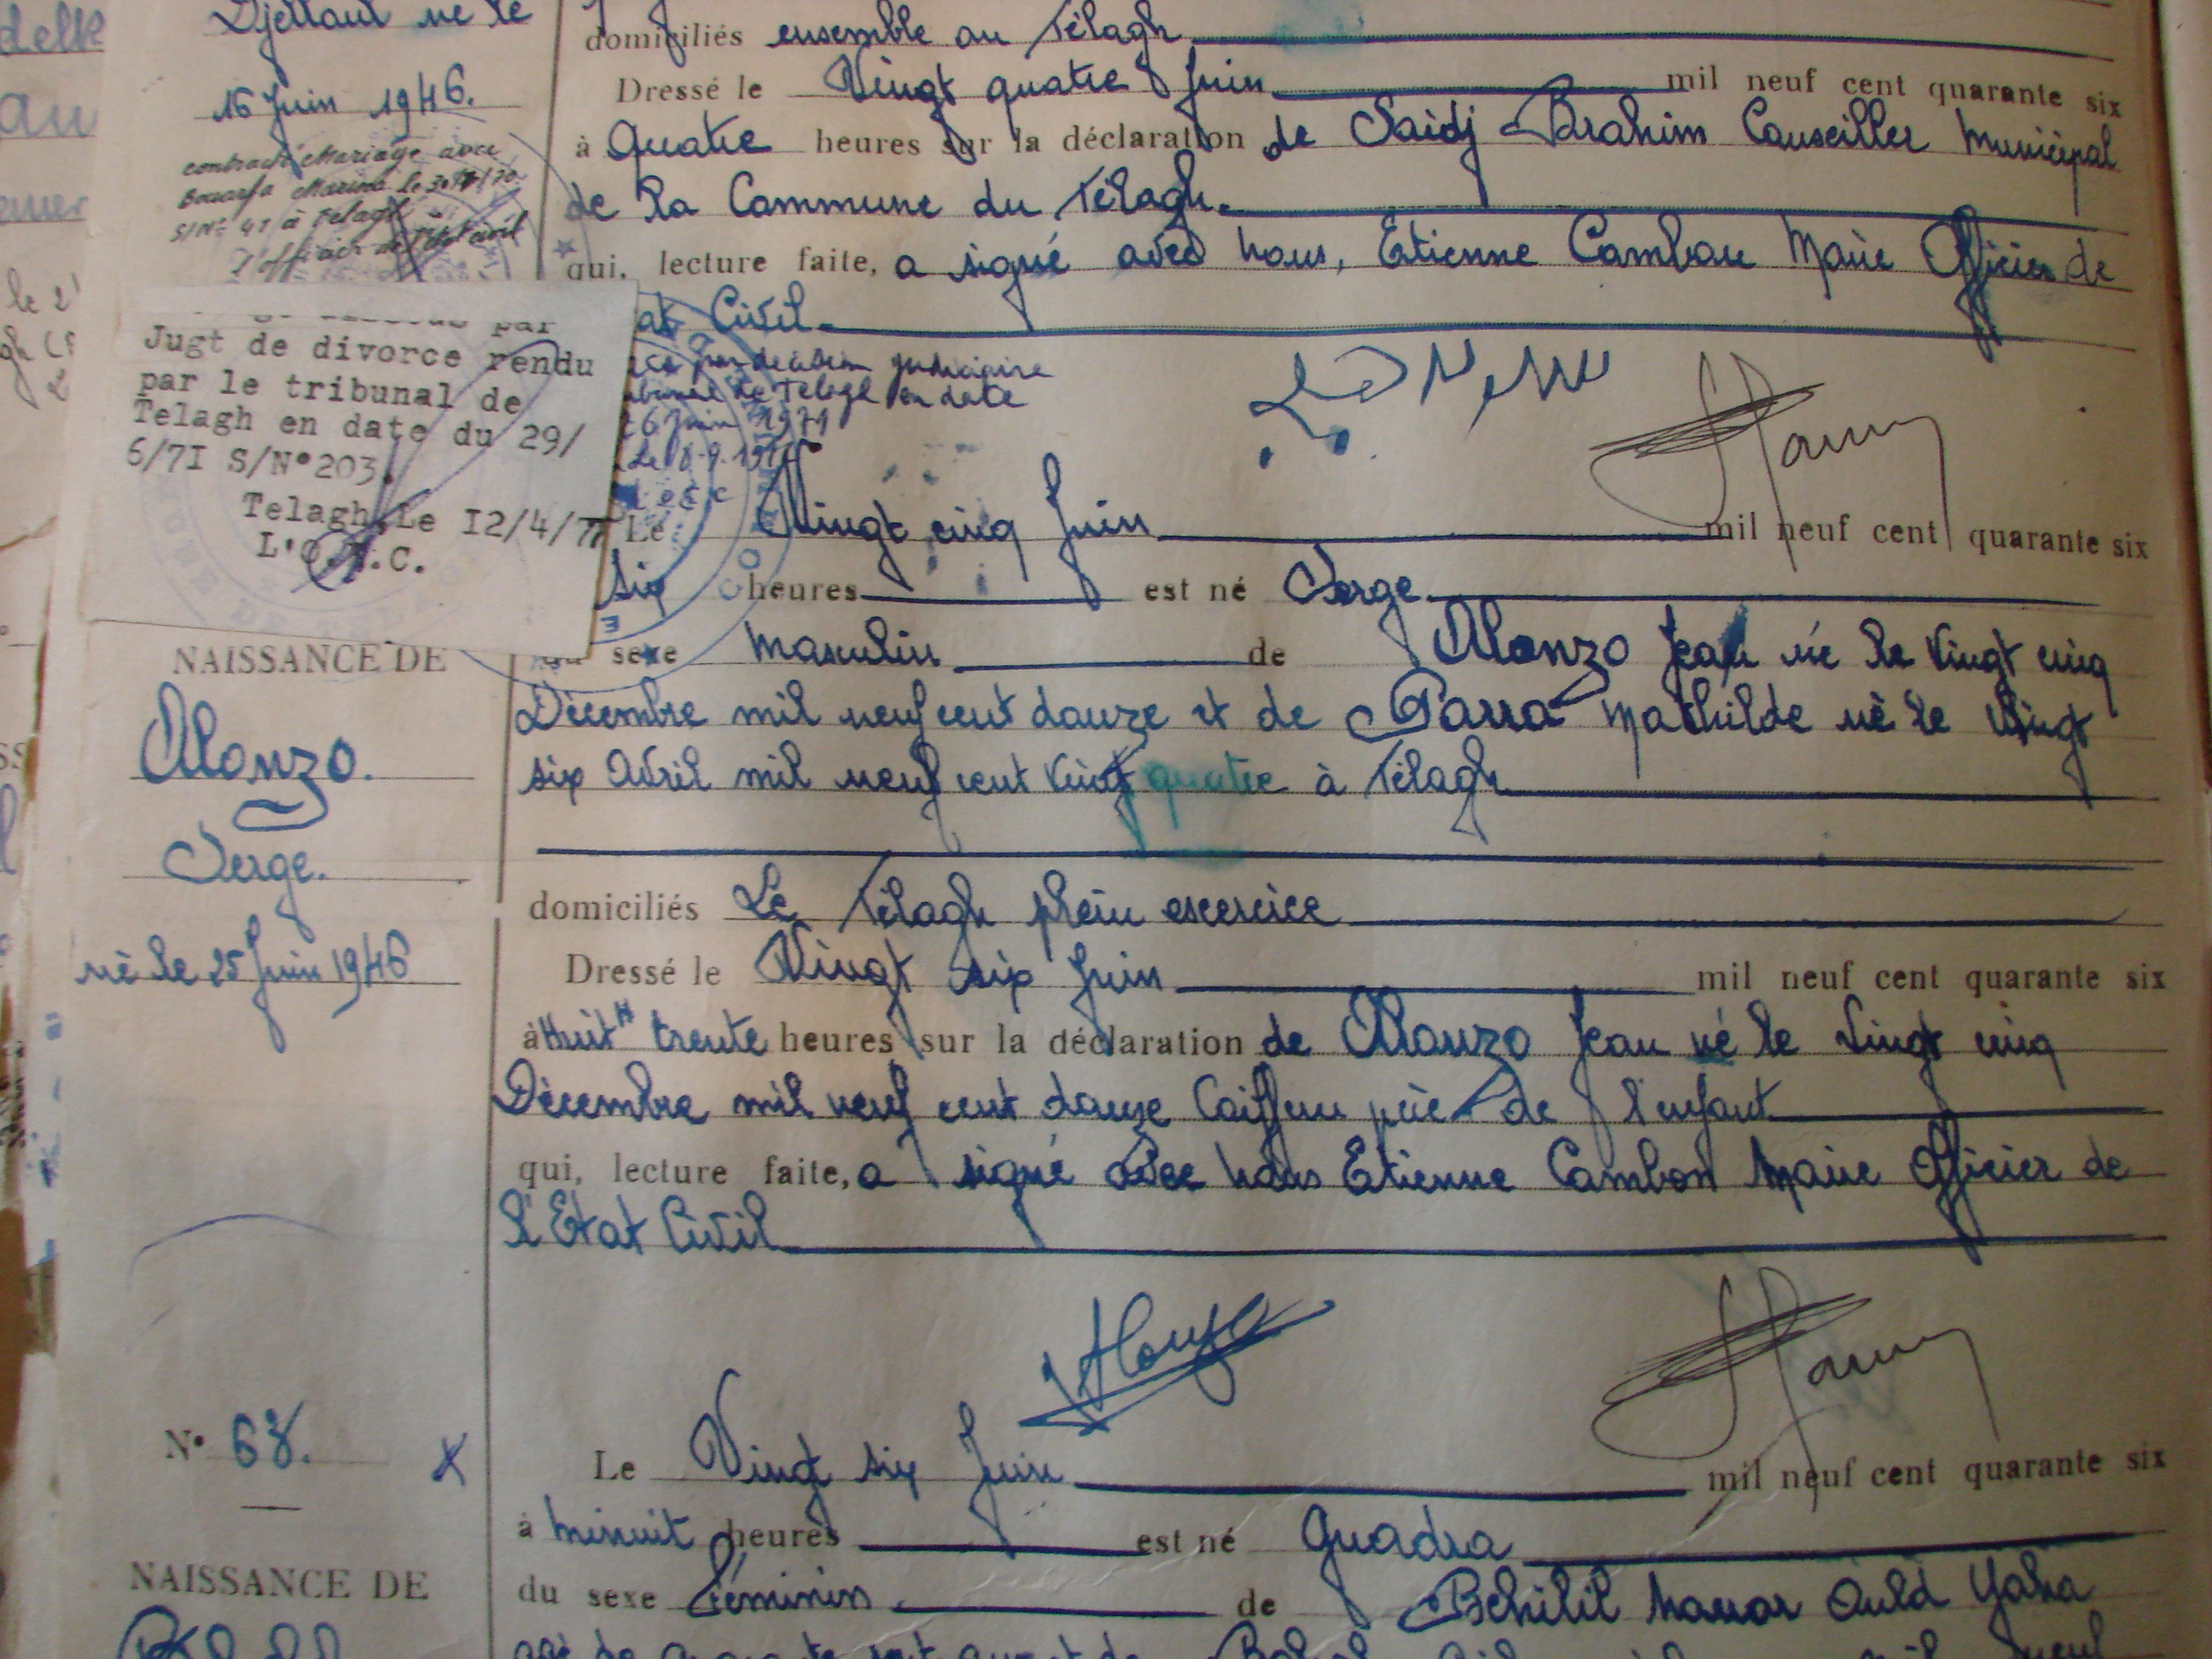 Djelloul né le
16 Juin 1946.
contracté Mariage avec
Bouarfa
S/N° 41 à Telagh
l'officier de l'état civil
par
Jugt de divorce rendu
par le tribunal de
Telagh en date du 29/
6/7I S/N°203.
Telagh Le I2/4/7
L'O.E.C.
domiciliés ensemble au Télagh
Dressé le Vingt quatre Juin mil neuf cent quarante six
à Quatre heures sur la déclaration de Saidj Brahim Conseiller Municipal
de la Commune du Télagh.
qui, lecture faite, a signé avec nous, Etienne Cambon Maire Officier de
at Civil
par décision judiciaire
de Telagh en date
6 Juin 1971
Le Vingt cinq Juin mil neuf cent quarante six
six heures est né Serge.
sexe masculin de Alonzo Jean né le Vingt cinq
Décembre mil neuf cent douze et de Parra Mathilde né le Vingt
six Avril mil neuf cent vingt quatre à Télagh
domiciliés Le Télagh plein escercice
Dressé le Vingt six Juin mil neuf cent quarante six
à Huit H trente heures sur la déclaration de Alonzo Jean né le Vingt cinq
Décembre mil neuf cent douze Coiffeur père de l'enfant
qui, lecture faite, a signé avec nous Etienne Cambon Maire Officier de
l'Etat Civil
NAISSANCE DE
Alonzo.
Serge.
né le 25 Juin 1946
Alonzo
N° 68.
Le Vingt six Juin mil neuf cent quarante six
à minuit heures est né Guadra
du sexe Féminin de Behilil Ould Yaha
NAISSANCE DE